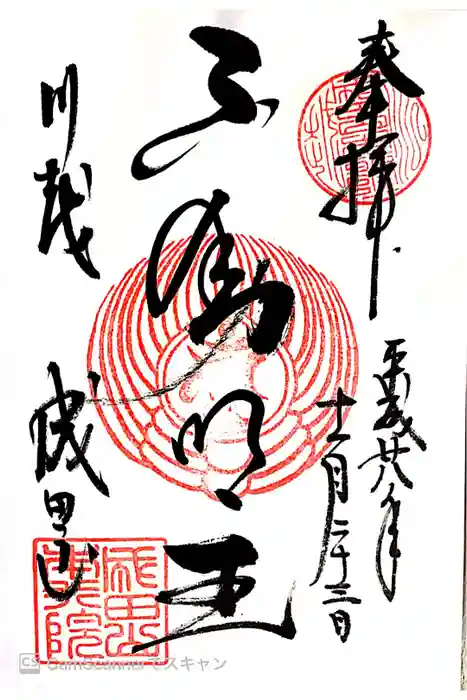 奉拝
平成廿八年
十二月二十三日
不動明王
川越
成田山
成田山
CS CamScannerでスキャン